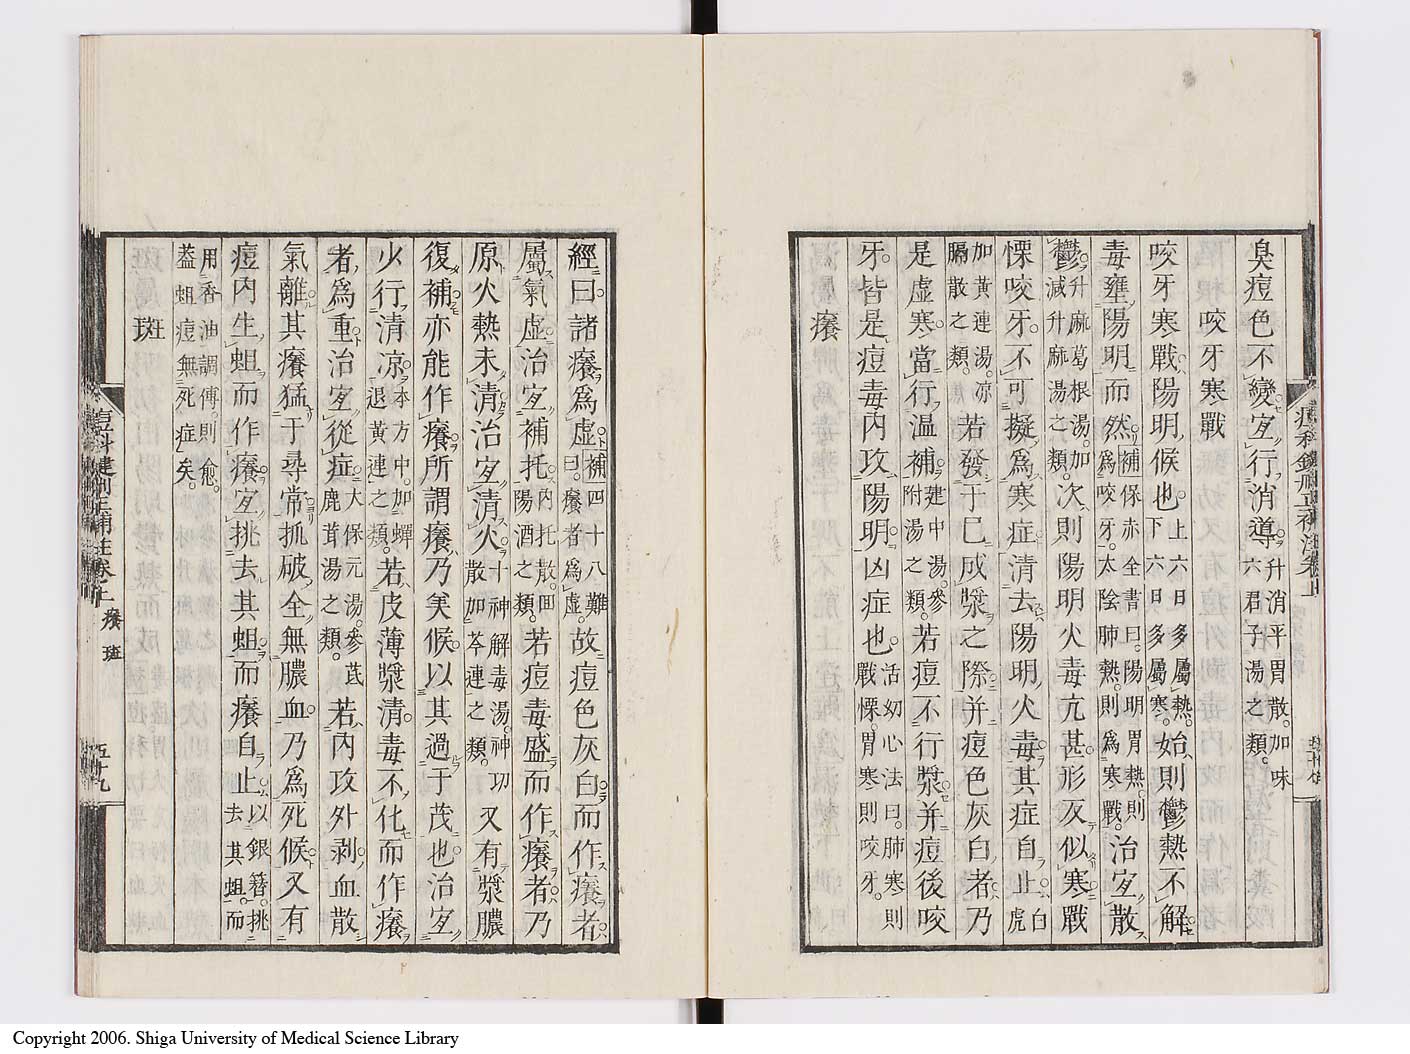 臭痘色不變宜行消導升消平胃散加味六君子湯之類
咬牙寒戰
咬牙寒戰陽明候也上六日多屬熱下六日多屬寒始則鬱熱不解
毒壅陽明而然補保赤全書曰陽明胃熱則爲咬牙太陰肺熱則爲寒戰治宜散
鬱升麻葛根湯加減升麻湯之類次則陽明火毒亢甚形反似寒戰
慄咬牙不可擬爲寒症清去陽明火毒其症自止白虎
加黃連湯凉膈散之類若發于已成漿之際并痘色灰白者乃
是虛寒當行温補建中湯參附湯之類若痘不行漿并痘後咬
牙皆是痘毒内攻陽明凶症也活幼心法曰肺寒則戰慄胃寒則咬牙
癢
經曰諸癢爲虛補四十八難曰癢者爲虛故痘色灰白而作癢者
屬氣虛治宜補托内托散回陽酒之類若痘毒盛而作癢者乃
原火熱未清治宜清火十神解毒湯神功散加芩連之類又有漿膿
復補亦能作癢所謂癢乃美候以其過于茂也治宜
少行清凉本方中加蟬退黃連之類若皮薄漿清毒不化而作癢
者爲重治宜從症大保元湯參芪鹿茸湯之類若内攻外剥血散
氣離其癢猛于尋常抓破全無膿血乃爲死候又有
痘内生蛆而作癢宜挑去其蛆而癢自止以銀簪挑去其蛆而
用香油調傅則愈蓋蛆痘無死症矣
斑
痘科鍵刪正補註卷上 癢 斑
五十九